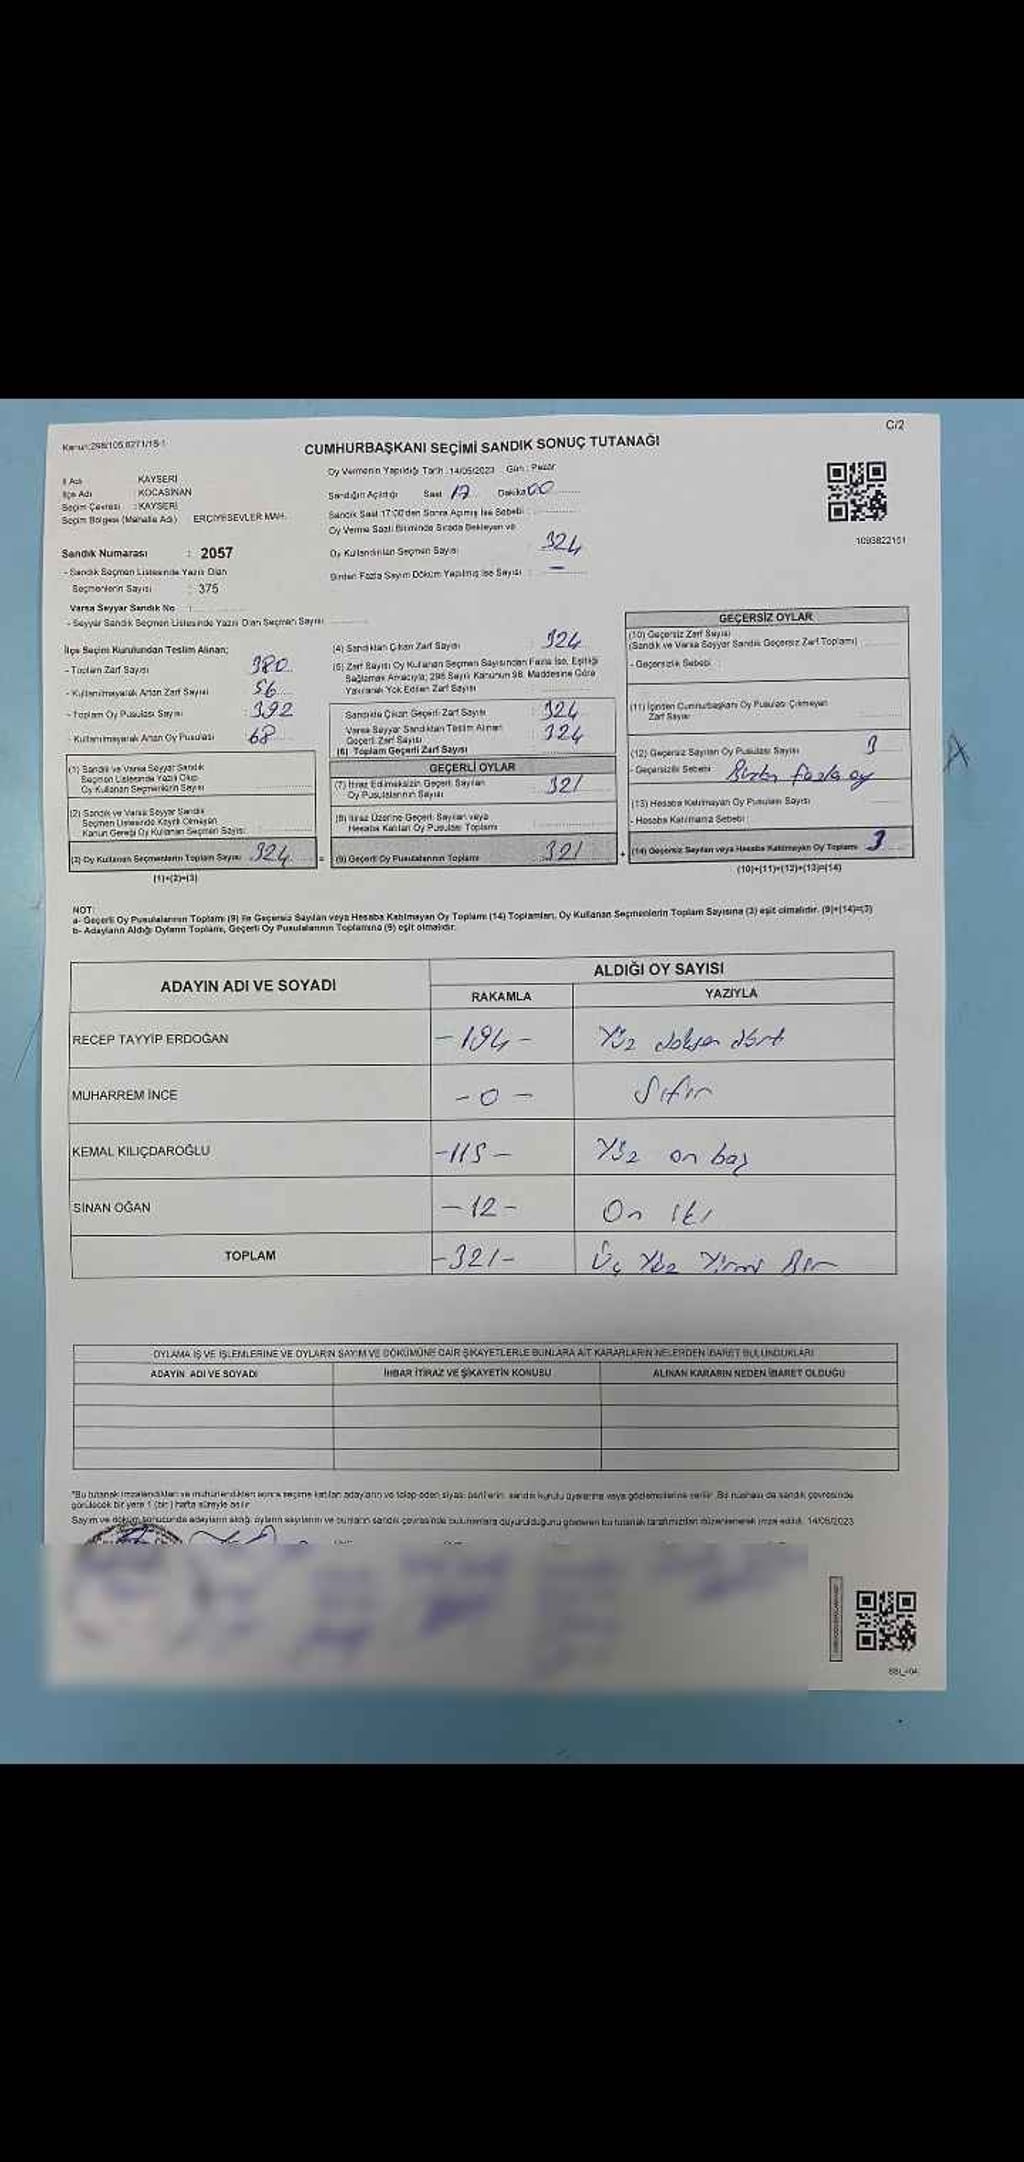 C/2
Kanun:298/105 6271/18-1
CUMHURBAŞKANI SEÇİMİ SANDIK SONUÇ TUTANAĞI
İl Adı KAYSERİ
İlçe Adı KOCASİNAN
Seçim Çevresi : KAYSERİ
Seçim Bölgesi (Mahalle Adı) ERCİYESEVLER MAH.
Oy Vermenin Yapıldığı Tarih : 14/05/2023 Gün : Pazar
Sandığın Açıldığı Saat 17 Dakika 00
Sandık Saat 17:00'den Sonra Açılmış İse Sebebi :
Oy Verme Saati Bitiminde Sırada Bekleyen ve
Oy Kullandırılan Seçmen Sayısı 324
Birden Fazla Sayım Döküm Yapılmış İse Sayısı : –
1093822151
Sandık Numarası : 2057
- Sandık Seçmen Listesinde Yazılı Olan
Seçmenlerin Sayısı : 375
Varsa Seyyar Sandık No :
- Seyyar Sandık Seçmen Listesinde Yazılı Olan Seçmen Sayısı
İlçe Seçim Kurulundan Teslim Alınan;
- Toplam Zarf Sayısı 380
- Kullanılmayarak Artan Zarf Sayısı 56
- Toplam Oy Pusulası Sayısı : 392
- Kullanılmayarak Artan Oy Pusulası 68
(1) Sandık ve Varsa Seyyar Sandık
Seçmen Listesinde Yazılı Olup
Oy Kullanan Seçmenlerin Sayısı
(2) Sandık ve Varsa Seyyar Sandık
Seçmen Listesinde Kayıtlı Olmayan
Kanun Gereği Oy Kullanan Seçmen Sayısı:
(3) Oy Kullanan Seçmenlerin Toplam Sayısı 324 =
(1)+(2)=(3)
(4) Sandıktan Çıkan Zarf Sayısı 324
(5) Zarf Sayısı Oy Kullanan Seçmen Sayısından Fazla İse, Eşitliği
Sağlamak Amacıyla; 298 Sayılı Kanunun 98. Maddesine Göre
Yakılarak Yok Edilen Zarf Sayısı
Sandıkta Çıkan Geçerli Zarf Sayısı 324
Varsa Seyyar Sandıktan Teslim Alınan
Geçerli Zarf Sayısı 324
(6) Toplam Geçerli Zarf Sayısı
GEÇERLİ OYLAR
(7) İtiraz Edilmeksizin Geçerli Sayılan
Oy Pusulalarının Sayısı 321
(8) İtiraz Üzerine Geçerli Sayılan veya
Hesaba Katılan Oy Pusulası Toplamı
(9) Geçerli Oy Pusulalarının Toplamı 321 +
GEÇERSİZ OYLAR
(10) Geçersiz Zarf Sayısı
(Sandık ve Varsa Seyyar Sandık Geçersiz Zarf Toplamı)
- Geçersizlik Sebebi :
(11) İçinden Cumhurbaşkanı Oy Pusulası Çıkmayan
Zarf Sayısı
(12) Geçersiz Sayılan Oy Pusulası Sayısı 3
- Geçersizlik Sebebi Birden fazla oy
(13) Hesaba Katılmayan Oy Pusulası Sayısı
- Hesaba Katılmama Sebebi :
(14) Geçersiz Sayılan veya Hesaba Katılmayan Oy Toplamı 3
(10)+(11)+(12)+(13)=(14)
A
NOT:
a- Geçerli Oy Pusulalarının Toplamı (9) ile Geçersiz Sayılan veya Hesaba Katılmayan Oy Toplamı (14) Toplamları, Oy Kullanan Seçmenlerin Toplam Sayısına (3) eşit olmalıdır. (9)+(14)=(3)
b- Adayların Aldığı Oyların Toplamı, Geçerli Oy Pusulalarının Toplamına (9) eşit olmalıdır.
ADAYIN ADI VE SOYADI ALDIĞI OY SAYISI
RAKAMLA YAZIYLA
RECEP TAYYİP ERDOĞAN -194- Yüz doksan dört
MUHARREM İNCE -0- Sıfır
KEMAL KILIÇDAROĞLU -115- Yüz on beş
SİNAN OĞAN -12- On iki
TOPLAM -321- Üç Yüz Yirmi Bir
OYLAMA İŞ VE İŞLEMLERİNE VE OYLARIN SAYIM VE DÖKÜMÜNE DAİR ŞİKAYETLERLE BUNLARA AİT KARARLARIN NELERDEN İBARET BULUNDUKLARI
ADAYIN ADI VE SOYADI İHBAR İTİRAZ VE ŞİKAYETİN KONUSU ALINAN KARARIN NEDEN İBARET OLDUĞU
*Bu tutanak imzalandıktan ve mühürlendikten sonra seçime katılan adayların ve talep eden siyasi partilerin, sandık kurulu üyelerine veya gözlemcilerine verilir. Bir nüshası da sandık çevresinde
görülecek bir yere 1 (bir) hafta süreyle asılır.
Sayım ve döküm sonucunda adayların aldığı oyların sayılarını ve bunların sandık çevresinde bulunanlara duyurulduğunu gösteren bu tutanak tarafımızdan düzenlenerek imza edildi. 14/05/2023